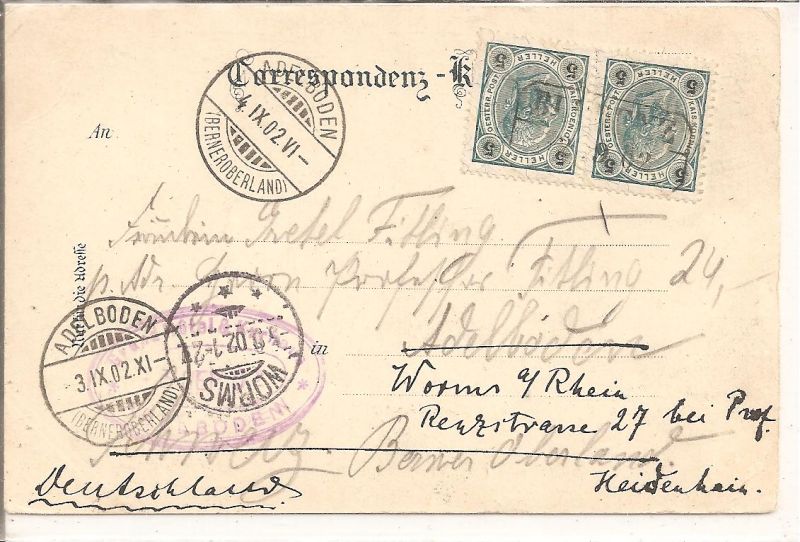 Correspondenz-K
An
Fräulein Gretel Fitling
p. Adr. Herrn Professor Fitling 24,-
in
Adelboden
Worms a/Rhein
Renzstrasse 27 bei Prof.
Heidenhain.
Schweiz. Berner Oberland.
Deutschland
Nur für die Adresse
5 5
HELLER
OESTERR. POST
KAIS. KOENIGL.
5 5
HELLER
5 5
HELLER
OESTERR. POST
KAIS. KOENIGL.
5 5
HELLER
ADELBODEN
4.IX.02.VI-
(BERNEROBERLAND)
ADELBODEN
3.IX.02.XI-
(BERNEROBERLAND)
WORMS